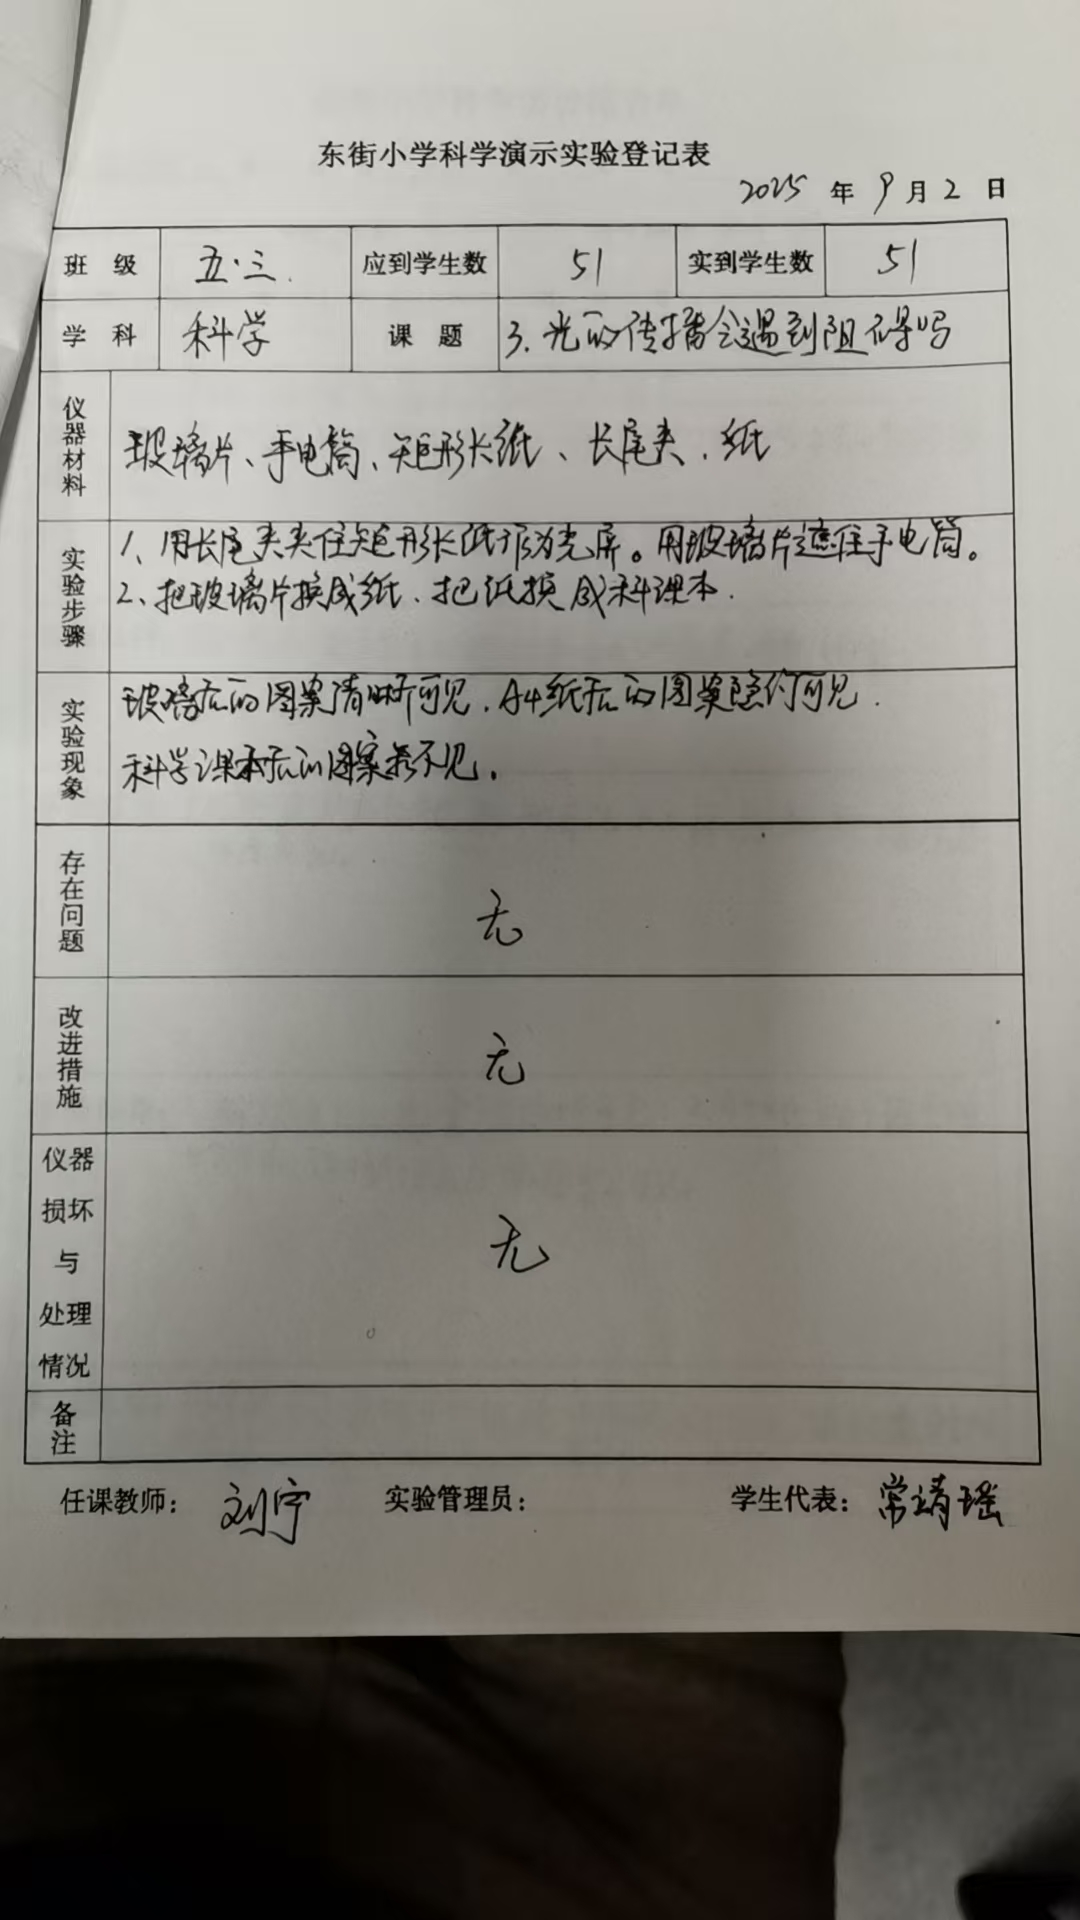 东街小学科学演示实验登记表
2025 年 9 月 2 日
班 级 五.三. 应到学生数 51 实到学生数 51
学 科 科学 课 题 3.光的传播会遇到阻碍吗
仪器材料 玻璃片、手电筒、矩形长纸、长尾夹、纸
实验步骤
1、用长尾夹夹住矩形长纸作为光屏。用玻璃片遮住手电筒。
2、把玻璃片换成纸、把纸换成科课本.
实验现象
玻璃后的图案清晰可见,A4纸后的图案隐约可见.
科学课本后的图案看不见。
存在问题 无
改进措施 无
仪器损坏与处理情况 无
备注
任课教师: 刘宁 实验管理员: 学生代表: 常靖瑶